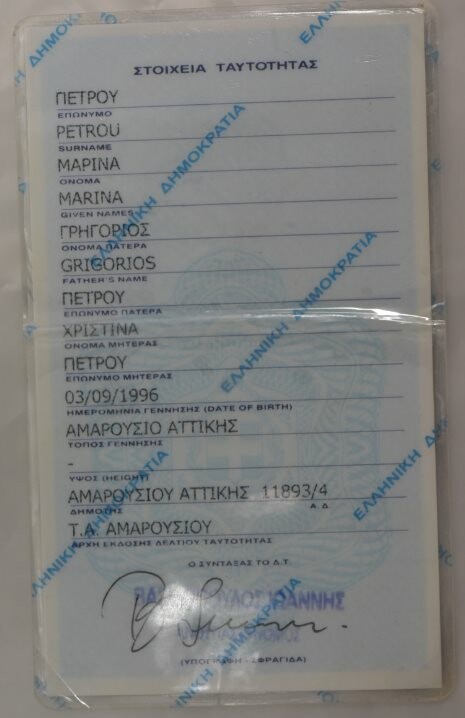 ΣΤΟΙΧΕΙΑ ΤΑΥΤΟΤΗΤΑΣ
ΠΕΤΡΟΥ
ΕΠΩΝΥΜΟ
PETROU
SURNAME
ΜΑΡΙΝΑ
ΟΝΟΜΑ
MARINA
GIVEN NAMES
ΓΡΗΓΟΡΙΟΣ
ΟΝΟΜΑ ΠΑΤΕΡΑ
GRIGORIOS
FATHER'S NAME
ΠΕΤΡΟΥ
ΕΠΩΝΥΜΟ ΠΑΤΕΡΑ
ΧΡΙΣΤΙΝΑ
ΟΝΟΜΑ ΜΗΤΕΡΑΣ
ΠΕΤΡΟΥ
ΕΠΩΝΥΜΟ ΜΗΤΕΡΑΣ
03/09/1996
ΗΜΕΡΟΜΗΝΙΑ ΓΕΝΝΗΣΗΣ (DATE OF BIRTH)
ΑΜΑΡΟΥΣΙΟ ΑΤΤΙΚΗΣ
ΤΟΠΟΣ ΓΕΝΝΗΣΗΣ
-
ΥΨΟΣ (HEIGHT)
ΑΜΑΡΟΥΣΙΟΥ ΑΤΤΙΚΗΣ 11893/4
ΔΗΜΟΤΗΣ Α Δ
Τ.Α. ΑΜΑΡΟΥΣΙΟΥ
ΑΡΧΗ ΕΚΔΟΣΗΣ ΔΕΛΤΙΟΥ ΤΑΥΤΟΤΗΤΑΣ
Ο ΣΥΝΤΑΞΑΣ ΤΟ Δ.Τ.
ΙΩΑΝΝΗΣ
(ΥΠΟΓΡΑΦΗ - ΣΦΡΑΓΙΔΑ)
ΕΛΛΗΝΙΚΗ ΔΗΜΟΚΡΑΤΙΑ
ΕΛΛΗΝΙΚΗ ΔΗΜΟΚΡΑΤΙΑ
ΕΛΛΗΝΙΚΗ ΔΗΜΟΚΡΑΤΙΑ
ΕΛΛΗΝΙΚΗ ΔΗΜΟΚΡΑΤΙΑ